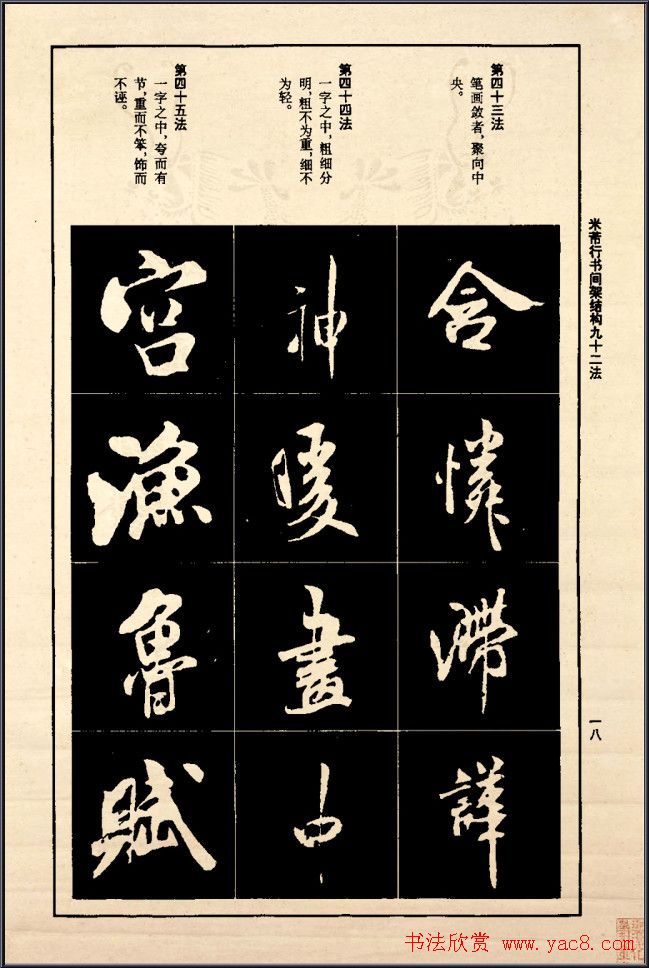 米芾行书间架结构九十二法
一八
第四十三法
笔画敛者，聚向中
央。
第四十四法
一字之中，粗细分
明，粗不为重，细不
为轻。
第四十五法
一字之中，夸而有
节，重而不笨，饰而
不诬。
含
憐
滯
譁
神
暖
畫
中
宫
漁
魯
賦
书法欣赏 www.yac8.com